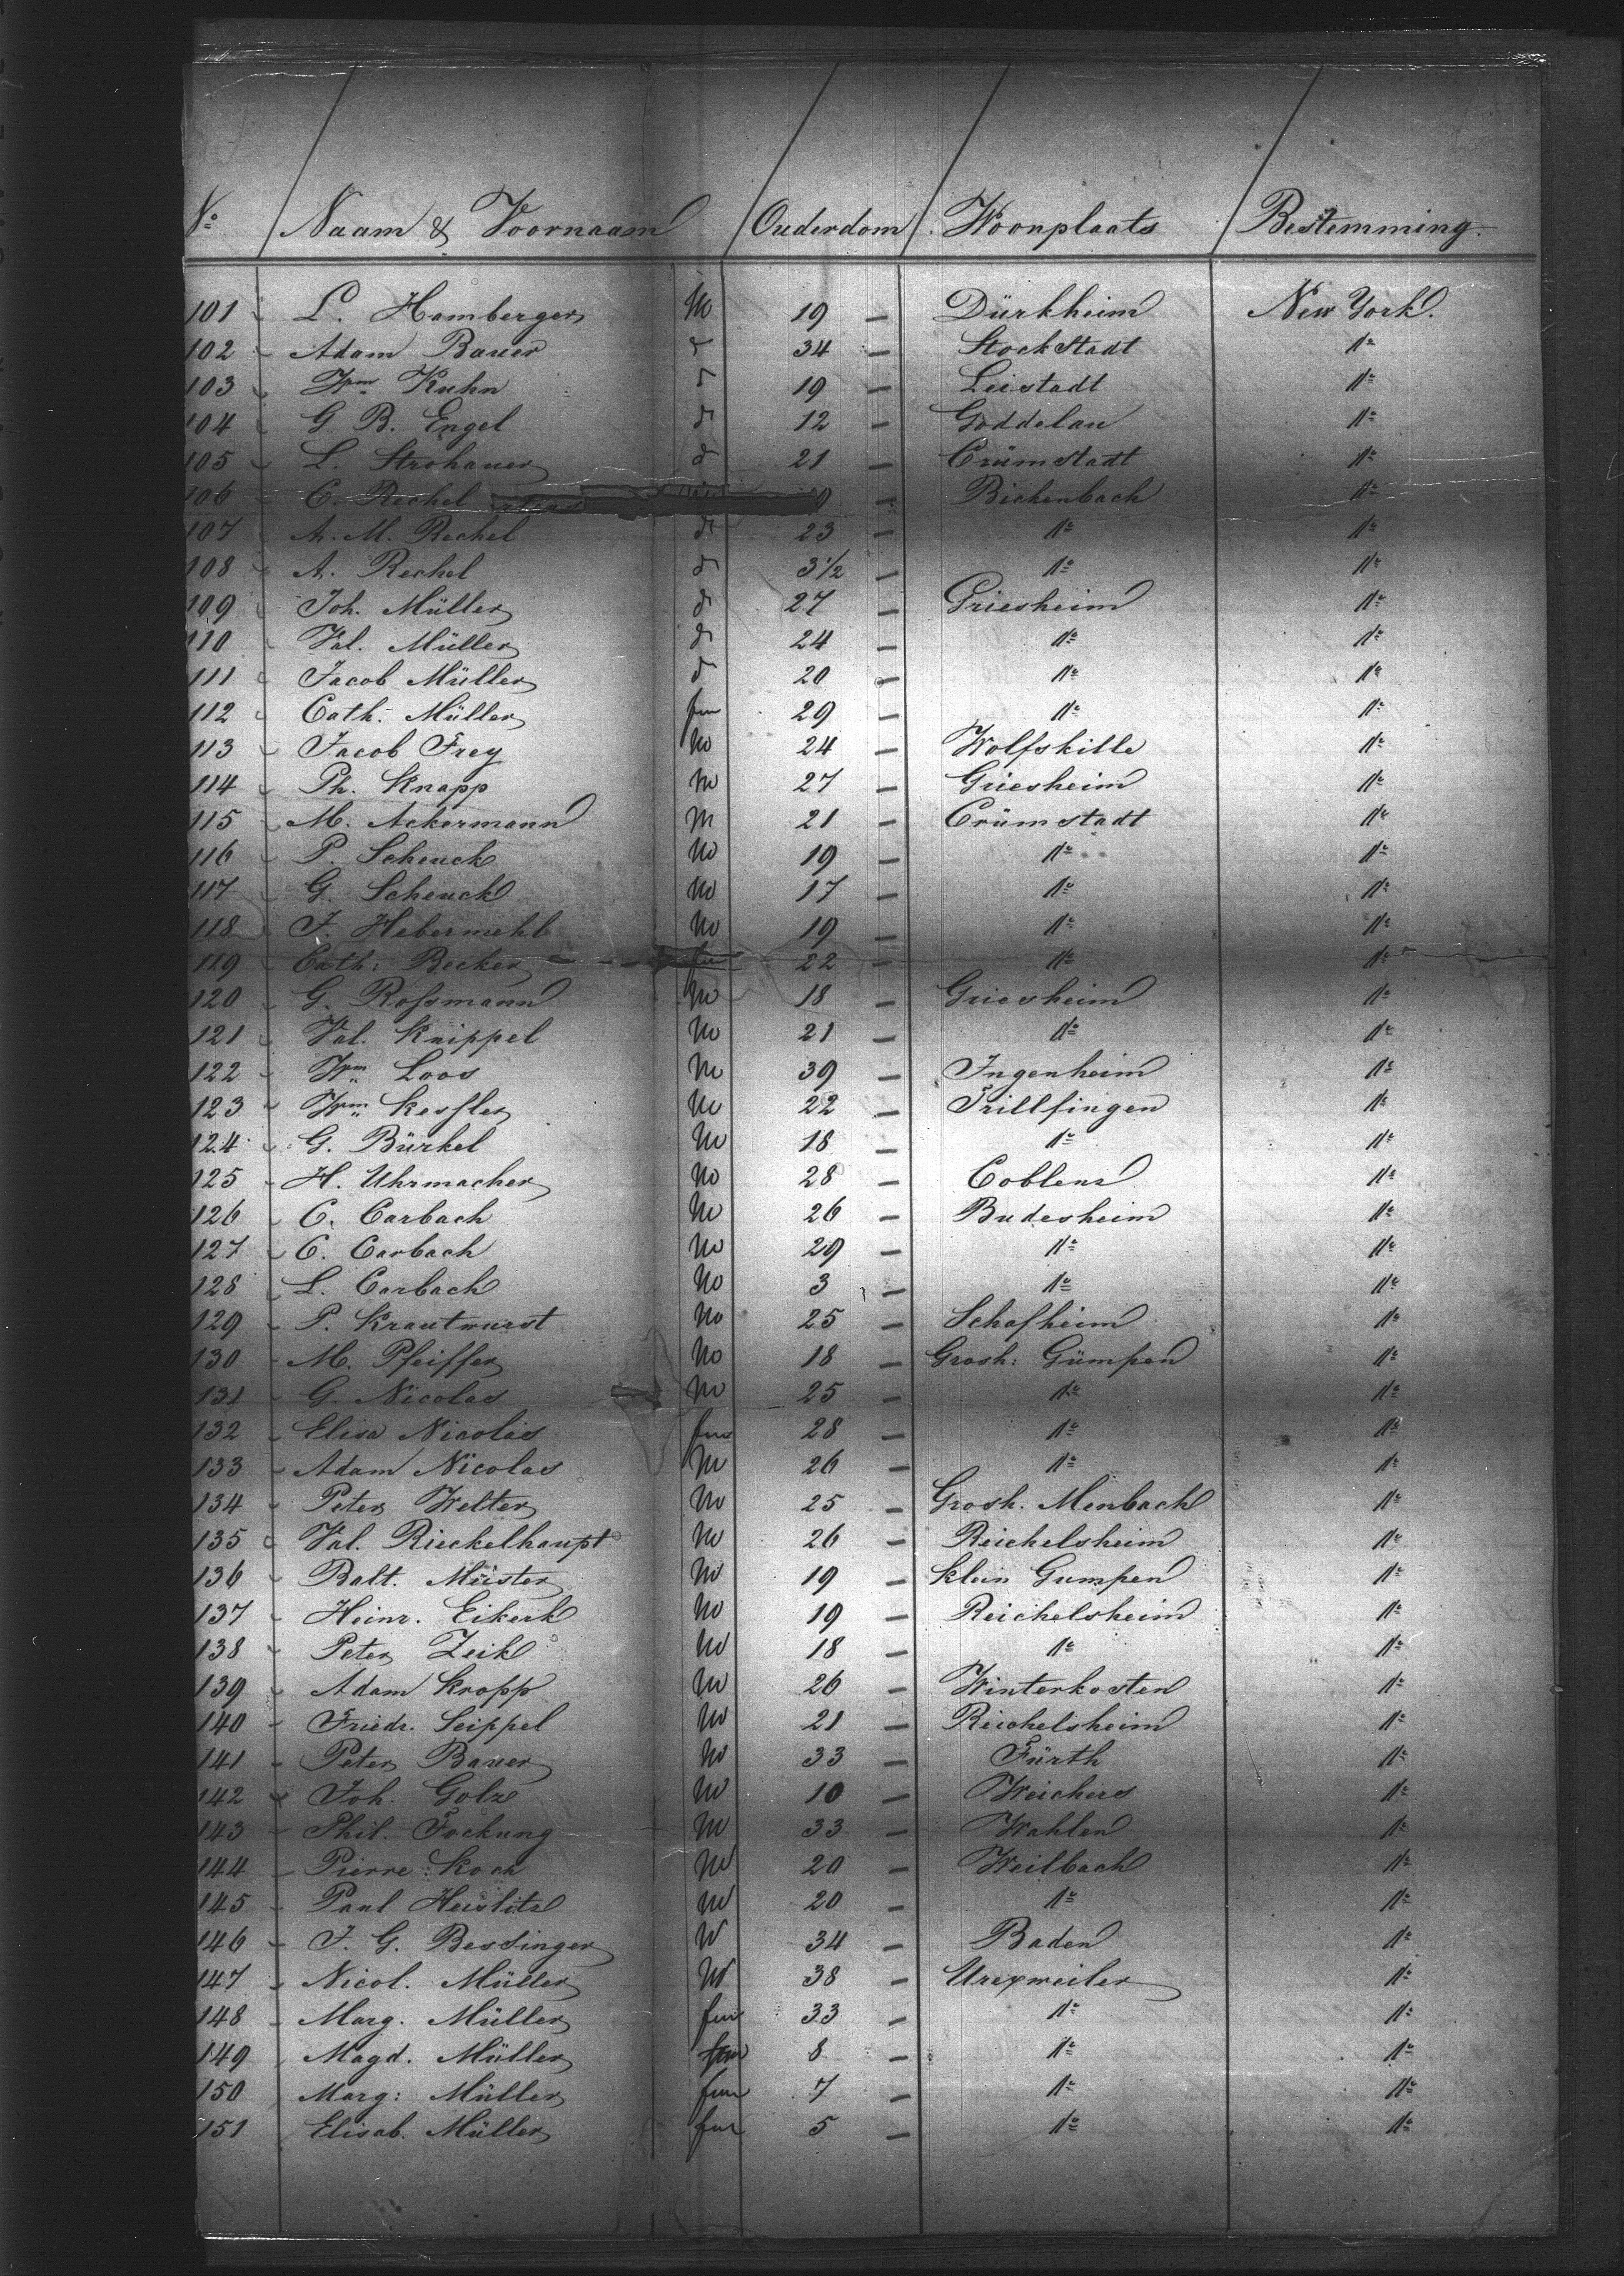 No. Naam & Voornaam Ouderdom Woonplaats Bestemming.
101 L. Hamberger m 19 — Dürkheim New York.
102 Adam Bauer d 34 — Stockstadt do
103 Wm Kuhn d 19 — Leistadt do
104 G. B. Engel d 12 — Goddelau do
105 L. Strohauer d 21 — Crümstadt do
106 C. Rechel — Bickenbach do
107 A. M. Rechel d 23 — do do
108 A. Rechel d 3 1/2 — do do
109 Joh. Müller d 27 — Griesheim do
110 Val. Müller d 24 — do do
111 Jacob Müller d 20 do do
112 Cath. Müller fm 29 — do do
113 Jacob Frey m 24 — Wolfskille do
114 Ph. Knapp m 27 — Griesheim do
115 M. Ackermann m 21 — Crümstadt do
116 P. Schenck m 19 — do do
117 G. Schenck m 17 — do do
118 J. Hebermehl m 19 — do do
119 Cath: Becker fm 22 — do do
120 G. Rossmann m 18 — Griesheim do
121 Val. Knippel m 21 — do do
122 Wm Loos m 39 — Ingenheim do
123 Wm Kessler m 22 — Trillfingen do
124 G. Bürkel m 18 — do do
125 H. Uhrmacher m 28 — Coblenz do
126 C. Carbach m 26 — Budesheim do
127 C. Carbach m 29 — do do
128 L. Carbach m 3 — do do
129 P. Krautwurst m 25 — Schafheim do
130 M. Pfeiffer m 18 — Grosh: Gümpen do
131 G. Nicolas m 25 — do do
132 Elisa Nicolas fm 28 — do do
133 Adam Nicolas m 26 — do do
134 Peter Welter m 25 — Grosh. Menbach do
135 Val. Rieckelhaupt m 26 — Reichelsheim do
136 Balt. Meister m 19 — Klein Gumpen do
137 Heinr. Eikerk m 19 — Reichelsheim do
138 Peter Zeik m 18 — do do
139 Adam Kropp m 26 — Winterkosten do
140 Friedr. Seippel m 21 — Reichelsheim do
141 Peter Bauer m 33 — Fürth do
142 Joh. Golz m 10 — Weichers do
143 Phil. Fockung m 33 — Wahlen do
144 Pierre Koch m 20 — Weilbach do
145 Paul Heislitz m 20 — do do
146 J. G. Bessinger m 34 — Baden do
147 Nicol. Müller m 38 — Urexweiler do
148 Marg. Müller fm 33 — do do
149 Magd. Müller fm 8 — do do
150 Marg: Müller fm 7 — do do
151 Elisab. Müller fm 5 — do do